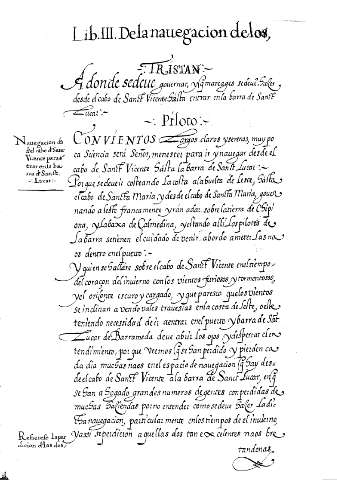 Lib. III. De la nauegacion de los,
TRISTAN
Adonde se deue gouernar, y q̃ mareages se deue hazer
desde el cabo de Sant Vicente hasta entrar en la barra de Sant
Lucar.
Piloto
Nauegacion de
del cabo de Sant
Vicente para
entrar en la ba-
rra de Sant
Lucar.
CON VIENTOS largos claros y serenos, muy po
ca sciencia será Señor, menester para ir y nauegar desde el
cabo de Sant Vicente hasta la barra de Sant Lucar.
Porque se deue ir costeando la costa a la buelta de Leste, hasta
el cabo de Sancta Maria, y desde el cabo de Sancta Maria, gouer
nando a leste francamente y ran a dar sobre la tierra de Chipi
ona, y la baxa de Salmedina, y estando alli los pilotos de
la barra ternan el cuidado de venir a bordo a meter las na
os dentro en el puerto.
Y quien se hallare sobre el cabo de Sant Vicente en el tiempo
del coraçon del inuierno con los vientos furiosos y tormentosos,
y el orizonte oscuro y cargado, y que paresca que los vientos
se inclinan a vendauales trauesias en la costa de leste, oeste
teniendo necesidad de ir a entrar en el puerto y barra de Sant
Lucar de Barrameda deue abrir los ojos y despertar el en
tendimiento, por que vemos q̃ se han perdido y pierden ca
da dia muchas naos en el espacio de nauegacion q̃ hay des
de el cabo de Sant Vicente a la barra de Sanct Lucar, en q̃
se han ahogado grandes numeros de gentes con perdidas de
muchas haziendas por no entender como se deue hazer la di
cha nauegacion, particularmente en los tiempos de el inuierno
Refierese la per
dicion de las dos
Vaxo se perdicion aquellas dos tan excelentes naos bre
tendonas,